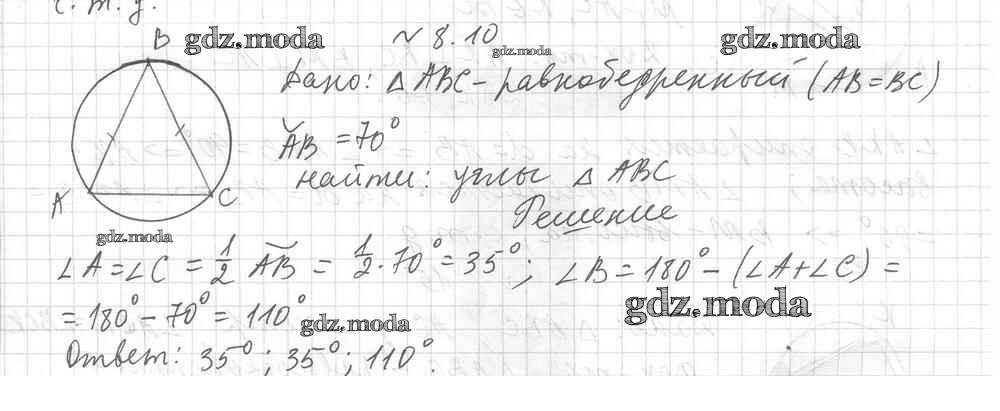 ч. т. д.
B
gdz.moda
~ 8.10
gdz.moda
gdz.moda
Дано: △ ABC - равнобедренный (AB=BC)
ᴗAB = 70°
найти: углы △ ABC
A
C
Решение
gdz.moda
∠A = ∠C = 1/2 ᴗAB = 1/2 · 70° = 35°; ∠B = 180° - (∠A+∠C) =
= 180° - 70° = 110°
gdz.moda
gdz.moda
Ответ: 35°; 35°; 110°.